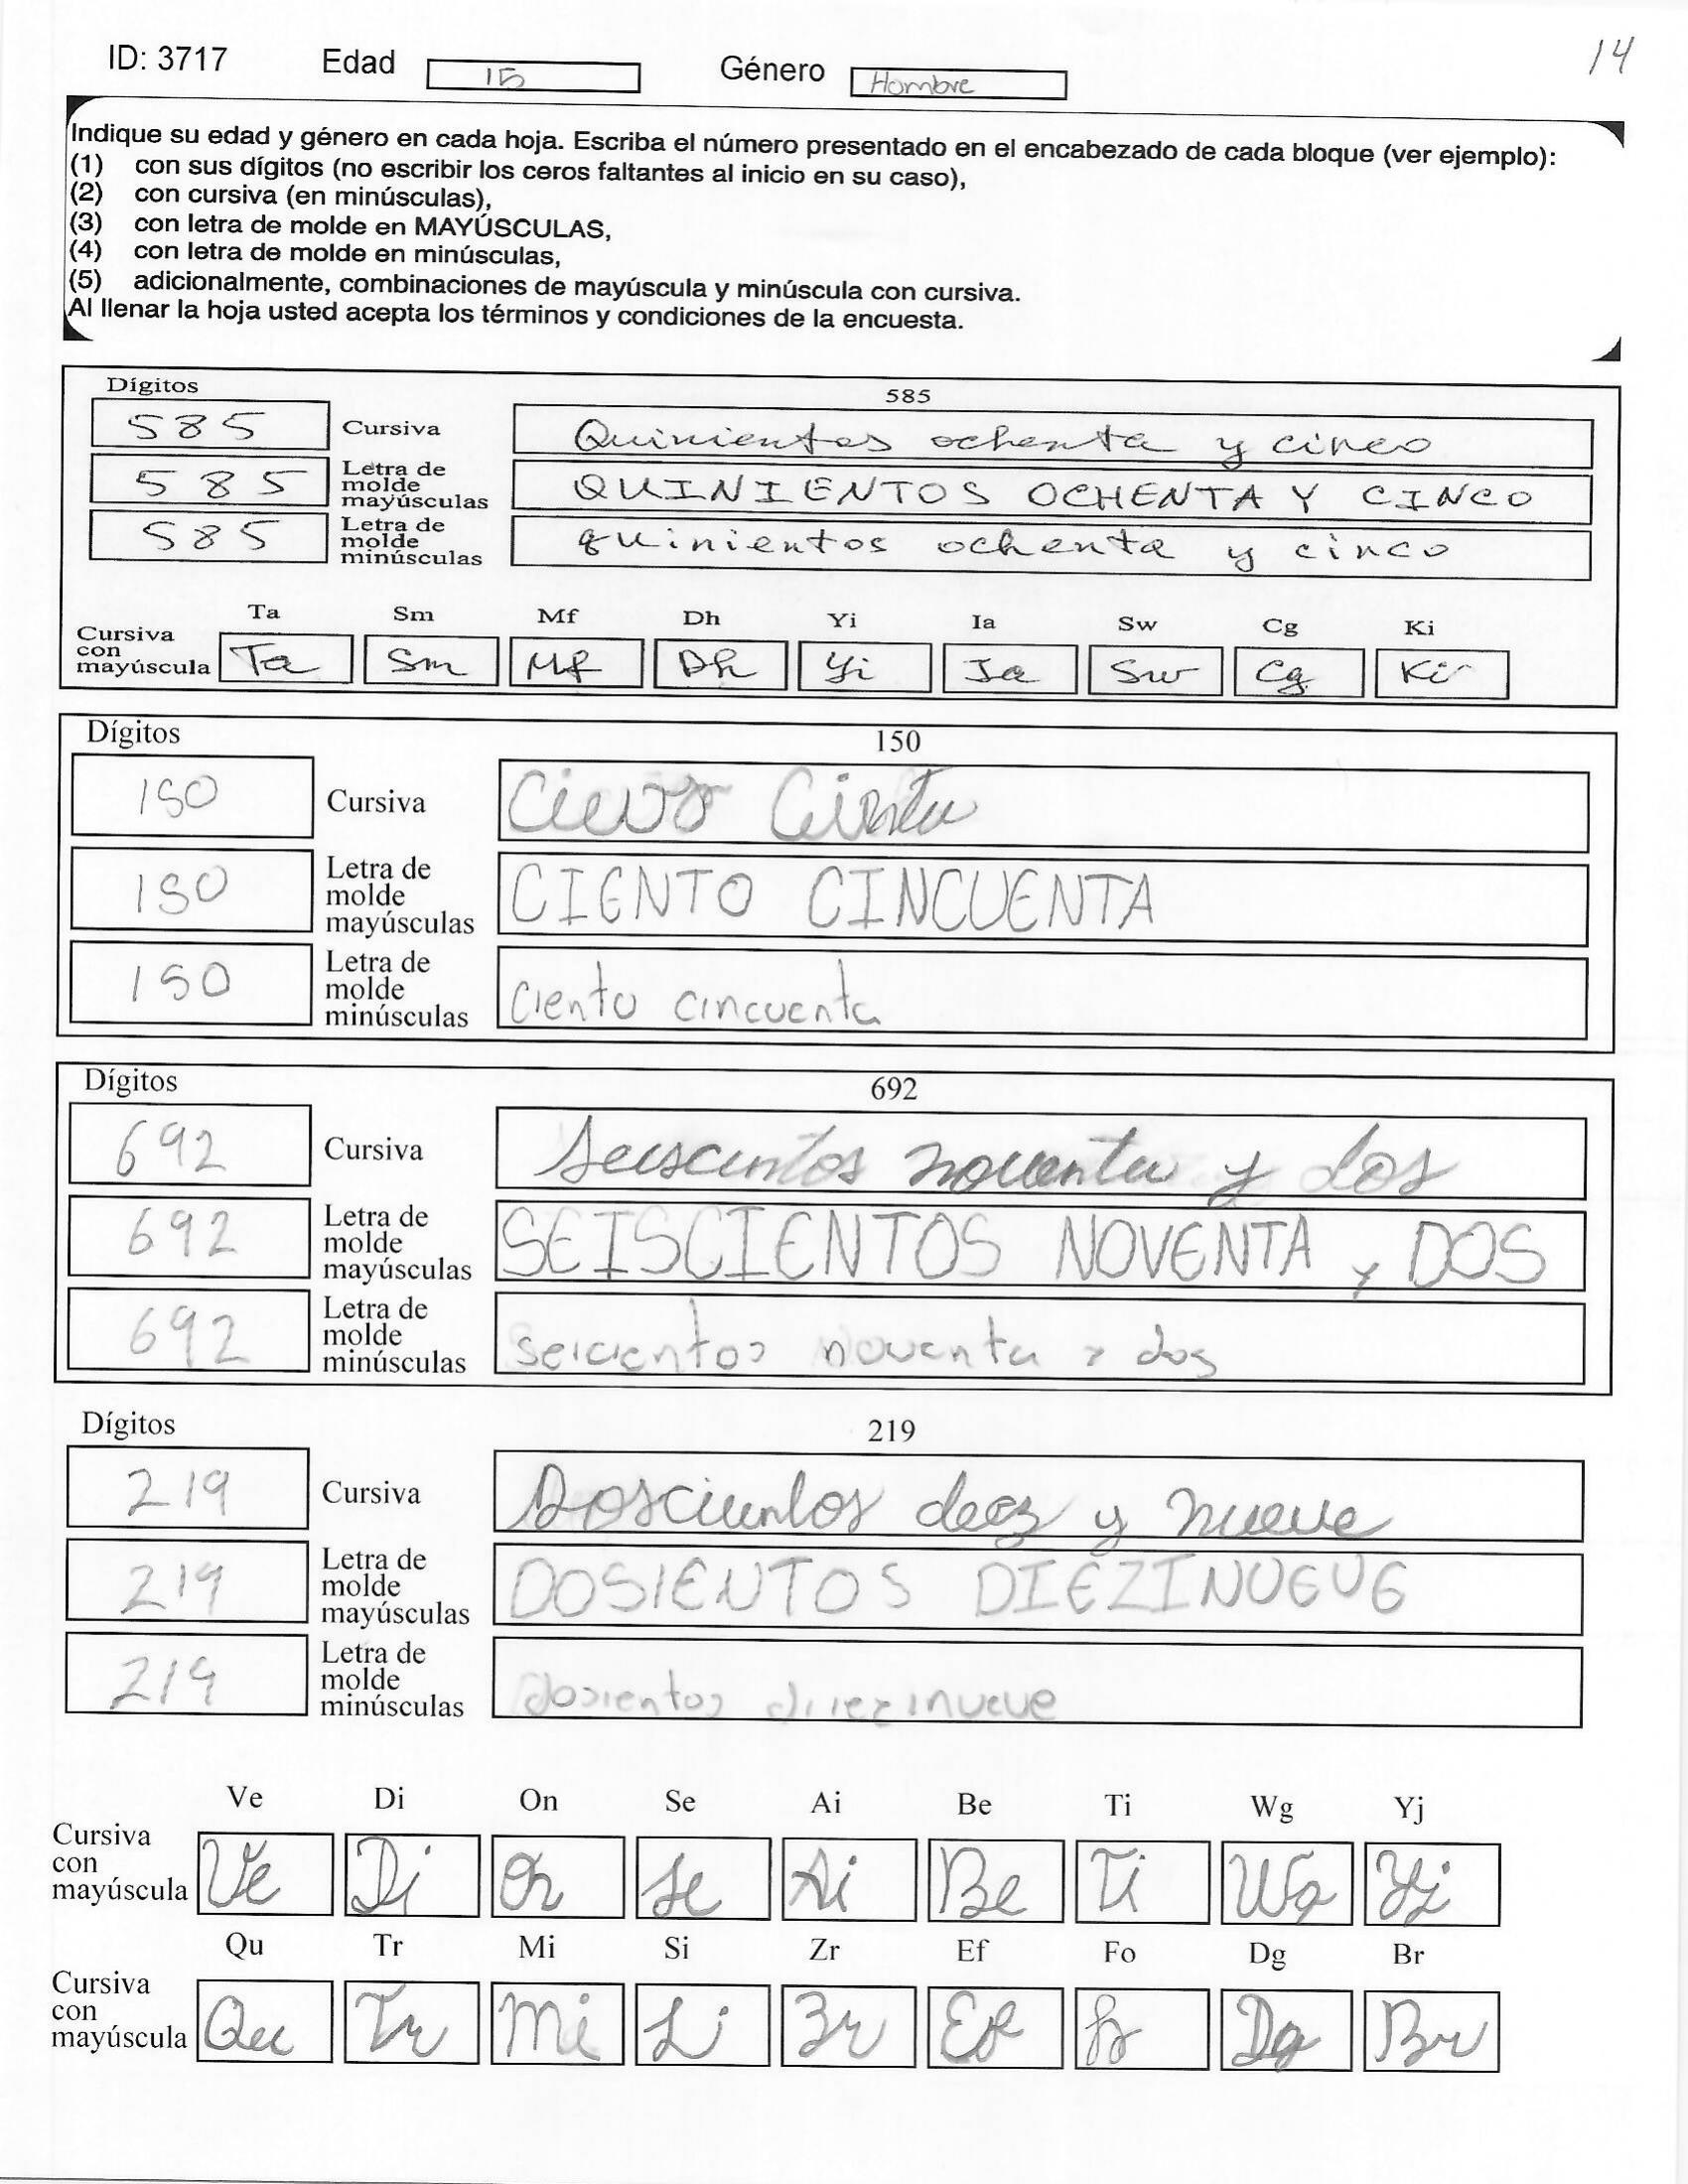 ID: 3717 Edad 15 Género Hombre 14
Indique su edad y género en cada hoja. Escriba el número presentado en el encabezado de cada bloque (ver ejemplo):
(1) con sus dígitos (no escribir los ceros faltantes al inicio en su caso),
(2) con cursiva (en minúsculas),
(3) con letra de molde en MAYÚSCULAS,
(4) con letra de molde en minúsculas,
(5) adicionalmente, combinaciones de mayúscula y minúscula con cursiva.
Al llenar la hoja usted acepta los términos y condiciones de la encuesta.
Dígitos 585
585 Cursiva Quinientos ochenta y cinco
585 Letra de molde mayúsculas QUINIENTOS OCHENTA Y CINCO
585 Letra de molde minúsculas quinientos ochenta y cinco
Ta Sm Mf Dh Yi Ia Sw Cg Ki
Cursiva con mayúscula Ta Sm Mf Dh Yi Ia Sw Cg Ki
Dígitos 150
150 Cursiva
150 Letra de molde mayúsculas CIENTO CINCUENTA
150 Letra de molde minúsculas ciento cincuenta
Dígitos 692
692 Cursiva noventa y dos
692 Letra de molde mayúsculas SEISCIENTOS NOVENTA y DOS
692 Letra de molde minúsculas seicientos noventa y dos
Dígitos 219
219 Cursiva y nueve
219 Letra de molde mayúsculas DOSIENTOS DIEZINUEVE
219 Letra de molde minúsculas dosientos diiezinueve
Ve Di On Se Ai Be Ti Wg Yj
Cursiva con mayúscula Ve Di On Se Ai Be Ti Wg Yj
Qu Tr Mi Si Zr Ef Fo Dg Br
Cursiva con mayúscula Qu Tr Mi Si Zr Ef Fo Dg Br